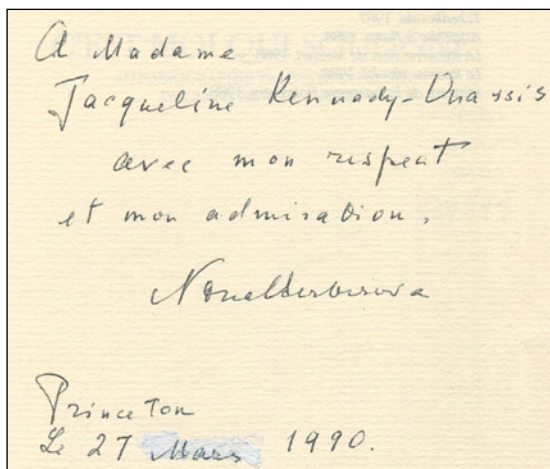 A Madame
Jacqueline Kennady-Onassis
avec mon respect
et mon admiration.
Nina Berberova
Princeton
Le 27 Mars 1990.